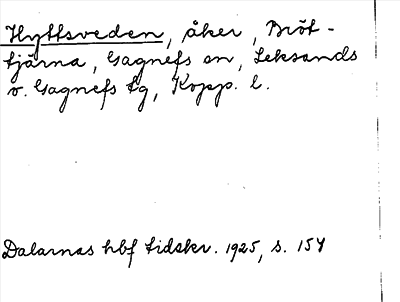 Hyttsveden, åker, Bröt-
tjärna, Gagnefs sn, Leksands
o. Gagnefs tg, Kopp. l.
Dalarnas hbf tidskr. 1925, s. 154